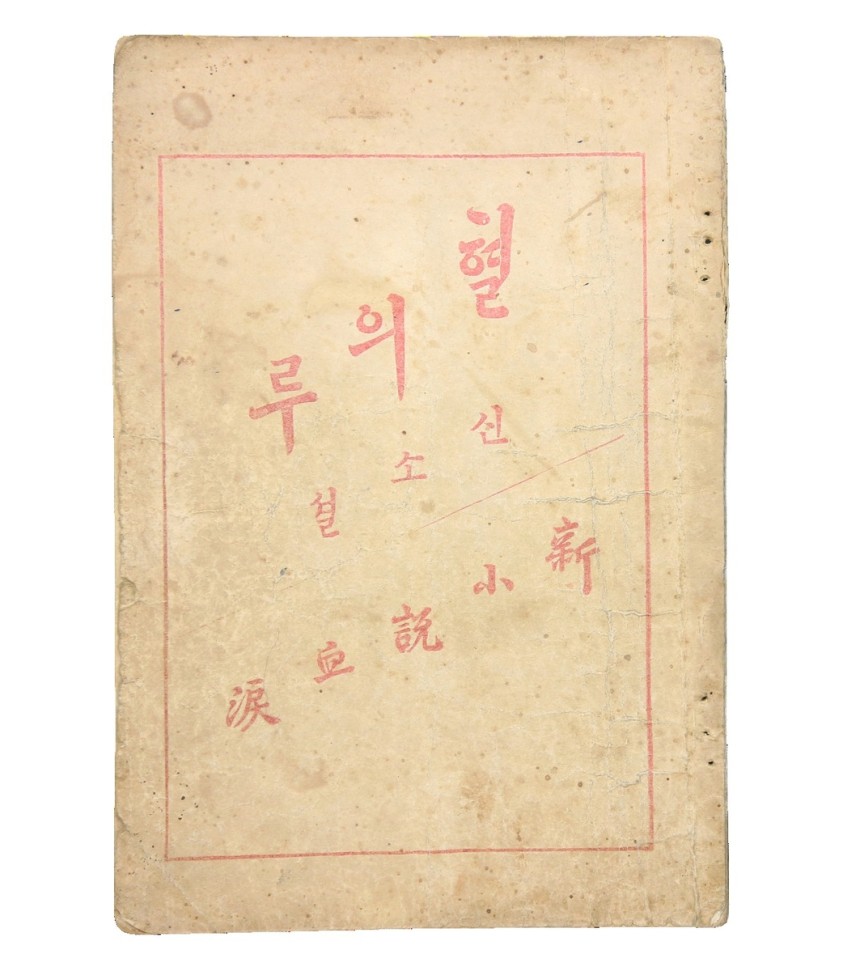 혈의루
신소셜
新小説血淚